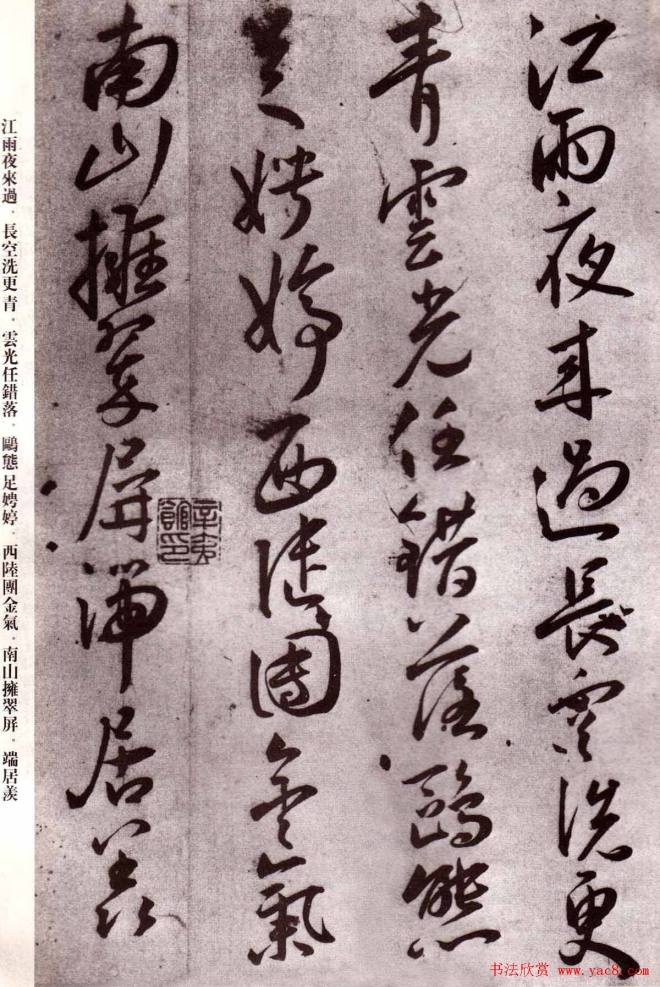 江雨夜来過長空洗更
青雲光任錯落鷗態
足娉婷西陸團金氣
南山擁翠屏端居羨
江雨夜來過。長空洗更青。雲光任錯落。鷗態足娉婷。西陸團金氣。南山擁翠屏。端居羨
书法欣赏 www.yac8.com